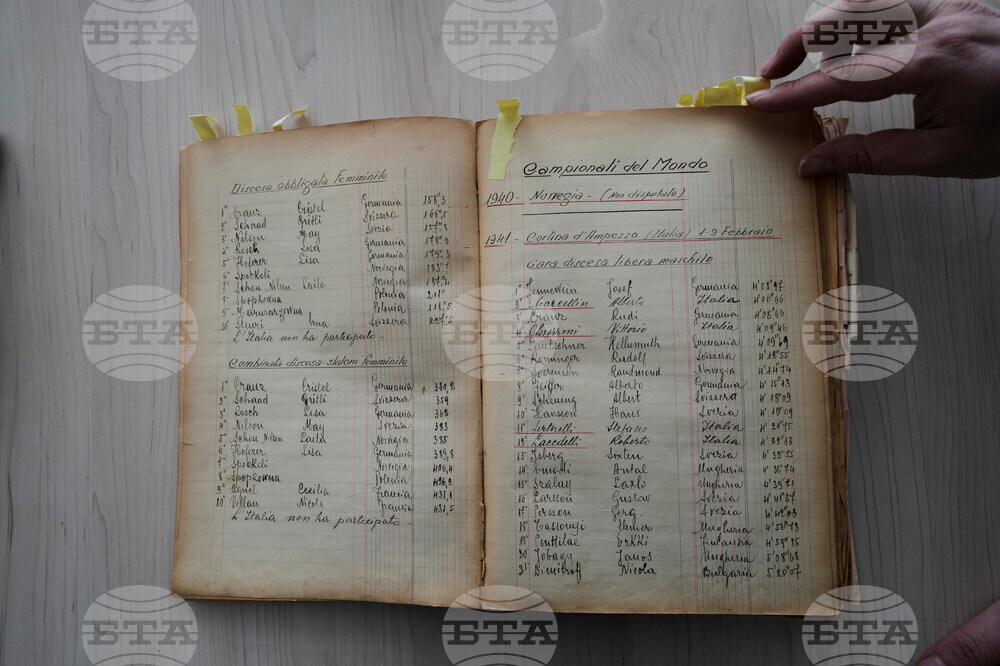 Discesa obbligata Femminile
1° Cranz Cristel Germania 153"3
2° Schaad Gritli Svizzera
3° Nilson May Svezia
4° Resch Lisa Germania 178"0
5° Hoferer Lisa Germania 179"3
6° Norvegia
7° Schou Nilsen Laila Norvegia
8° Polonia
9° Polonia
10° Irma Svizzera
L'Italia non ha partecipato -
Combinata discesa-slalom femminile
1° Cranz Cristel Germania
2° Schaad Gritli Svizzera 359
3° Resch Lisa Germania 362
4° Nilson May Svezia 383
5° Schou Nilsen Laila Norvegia 385
6° Hoferer Lisa Germania 389,8
7° Norvegia
8° Polonia
9° Agnel Cecilia Francia 431,1
10° Villan Nicole Francia 431,5
L'Italia non ha partecipato -
Campionati del Mondo
1940 - Norvegia - (Non disputato)
1941 - Cortina d'Ampezzo (Italia) 1-9 Febbraio
Gara discesa libera maschile
1° Jennewein Josef Germania 4'03"97
2° Marcellin Alberto Italia 4'06"66
3° Cranz Rudi Germania 4'08"66
4° Chierroni Vittorio Italia 4'09"46
5° Lantschner Hellumuth Germania
6° Rominger Rudolf Svizzera
7° Soerensen Raudmond Norvegia 4'14"74
8° Pfeiffer Alberto Germania
9° Scheuing Albert Svizzera 4'18"09
10° Hansson Hans Svezia 4'19"09
11° Sertorelli Stefano Italia
12° Lacedelli Roberto Italia
13° Isberg Sixten Svezia
14° Antal Ungheria
15° Szalay Laxlo Ungheria 4'39"71
16° Larsson Gustav Svezia
17° Persson Gerg Svezia
18° Ungheria
19° Penttilae Erkki Finlandia
20° Jobagy Janos Ungheria 5'08"68
21° Dimitroff Nicola Bulgaria 5'20"07
БТА
БТА
БТА
БТА
БТА
БТА
БТА
БТА
БТА